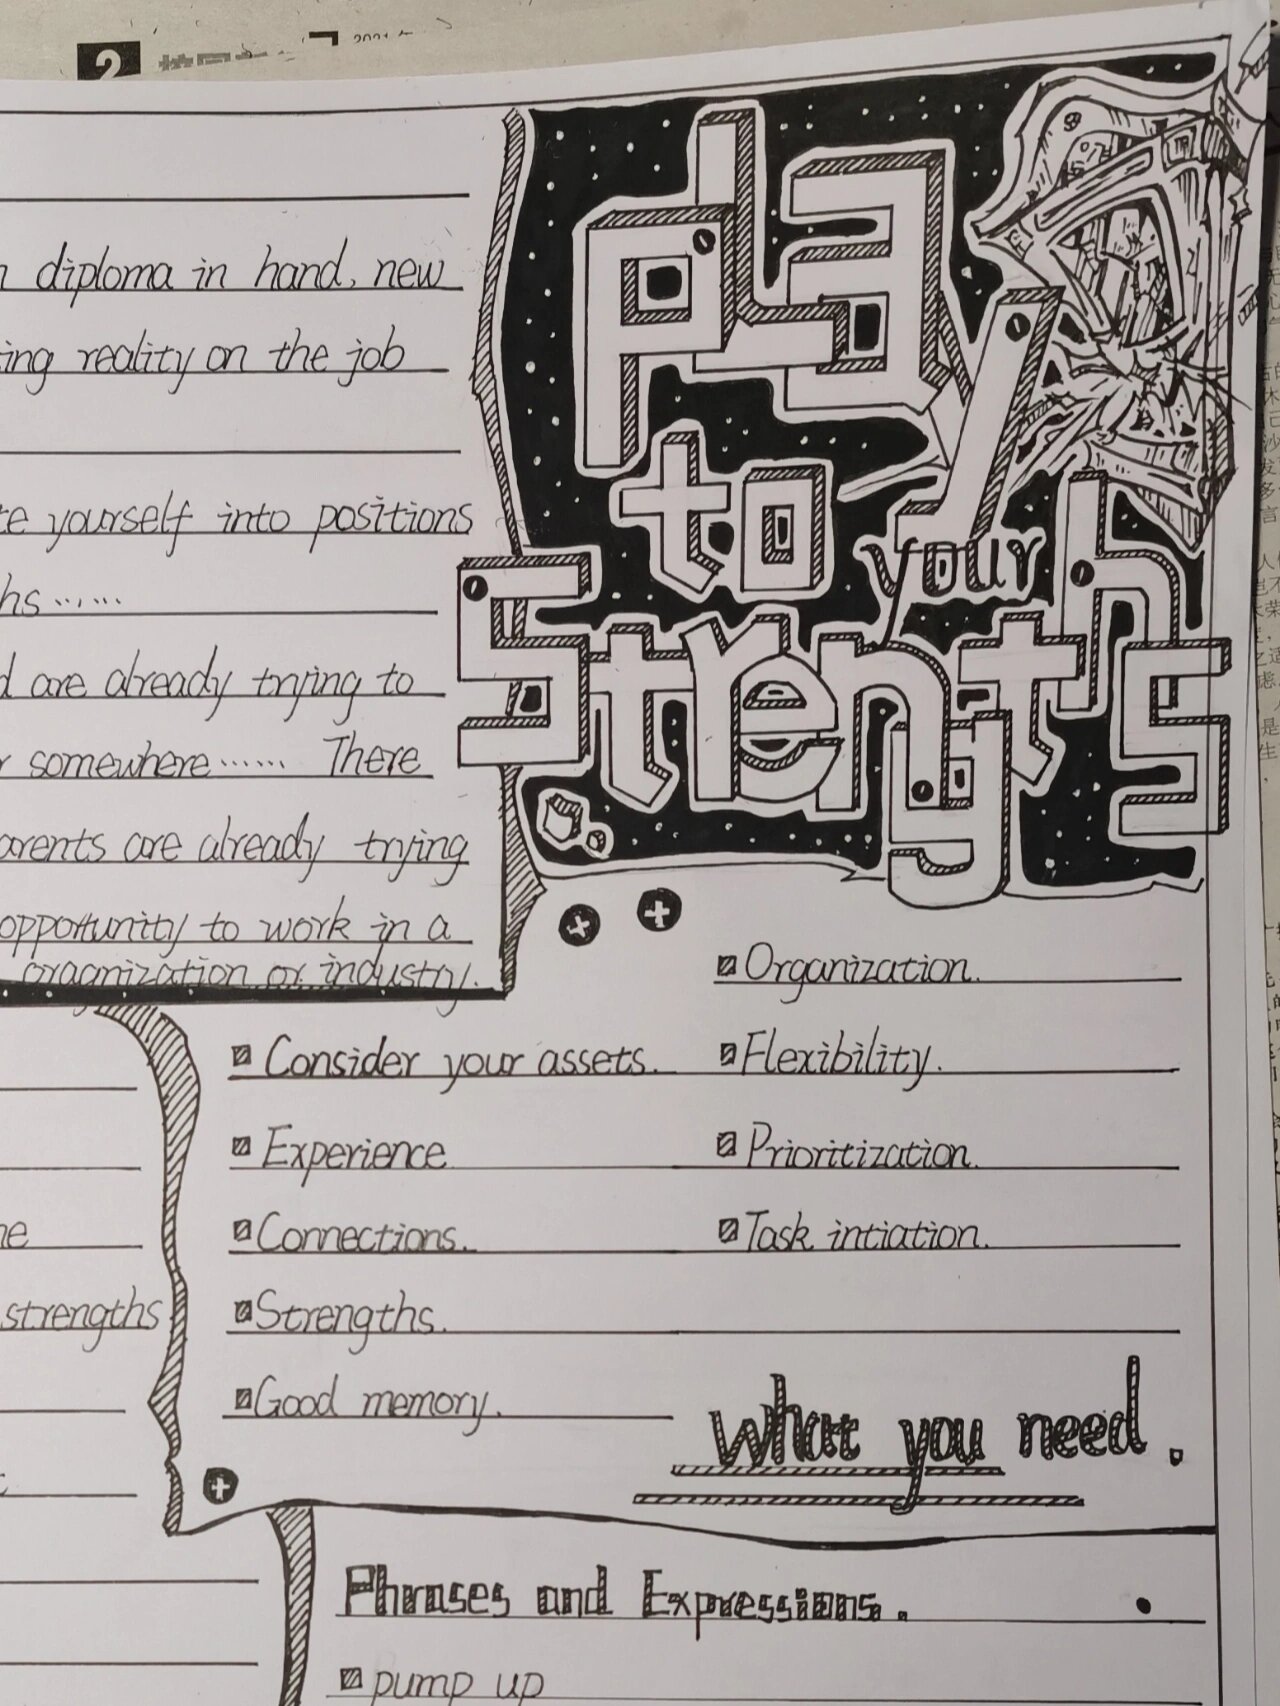 2
play
to
your
strengths
diploma in hand, new
ing reality on the job
yourself into positions
hs ......
are already trying to
somewhere ...... There
arents are already trying
opportunity to work in a
oragnization or industry.
strengths
Consider your assets.
Experience
Connections.
Strengths.
Good memory.
Organization.
Flexibility.
Prioritization.
Task intiation.
What you need.
Phrases and Expressions.
pump up